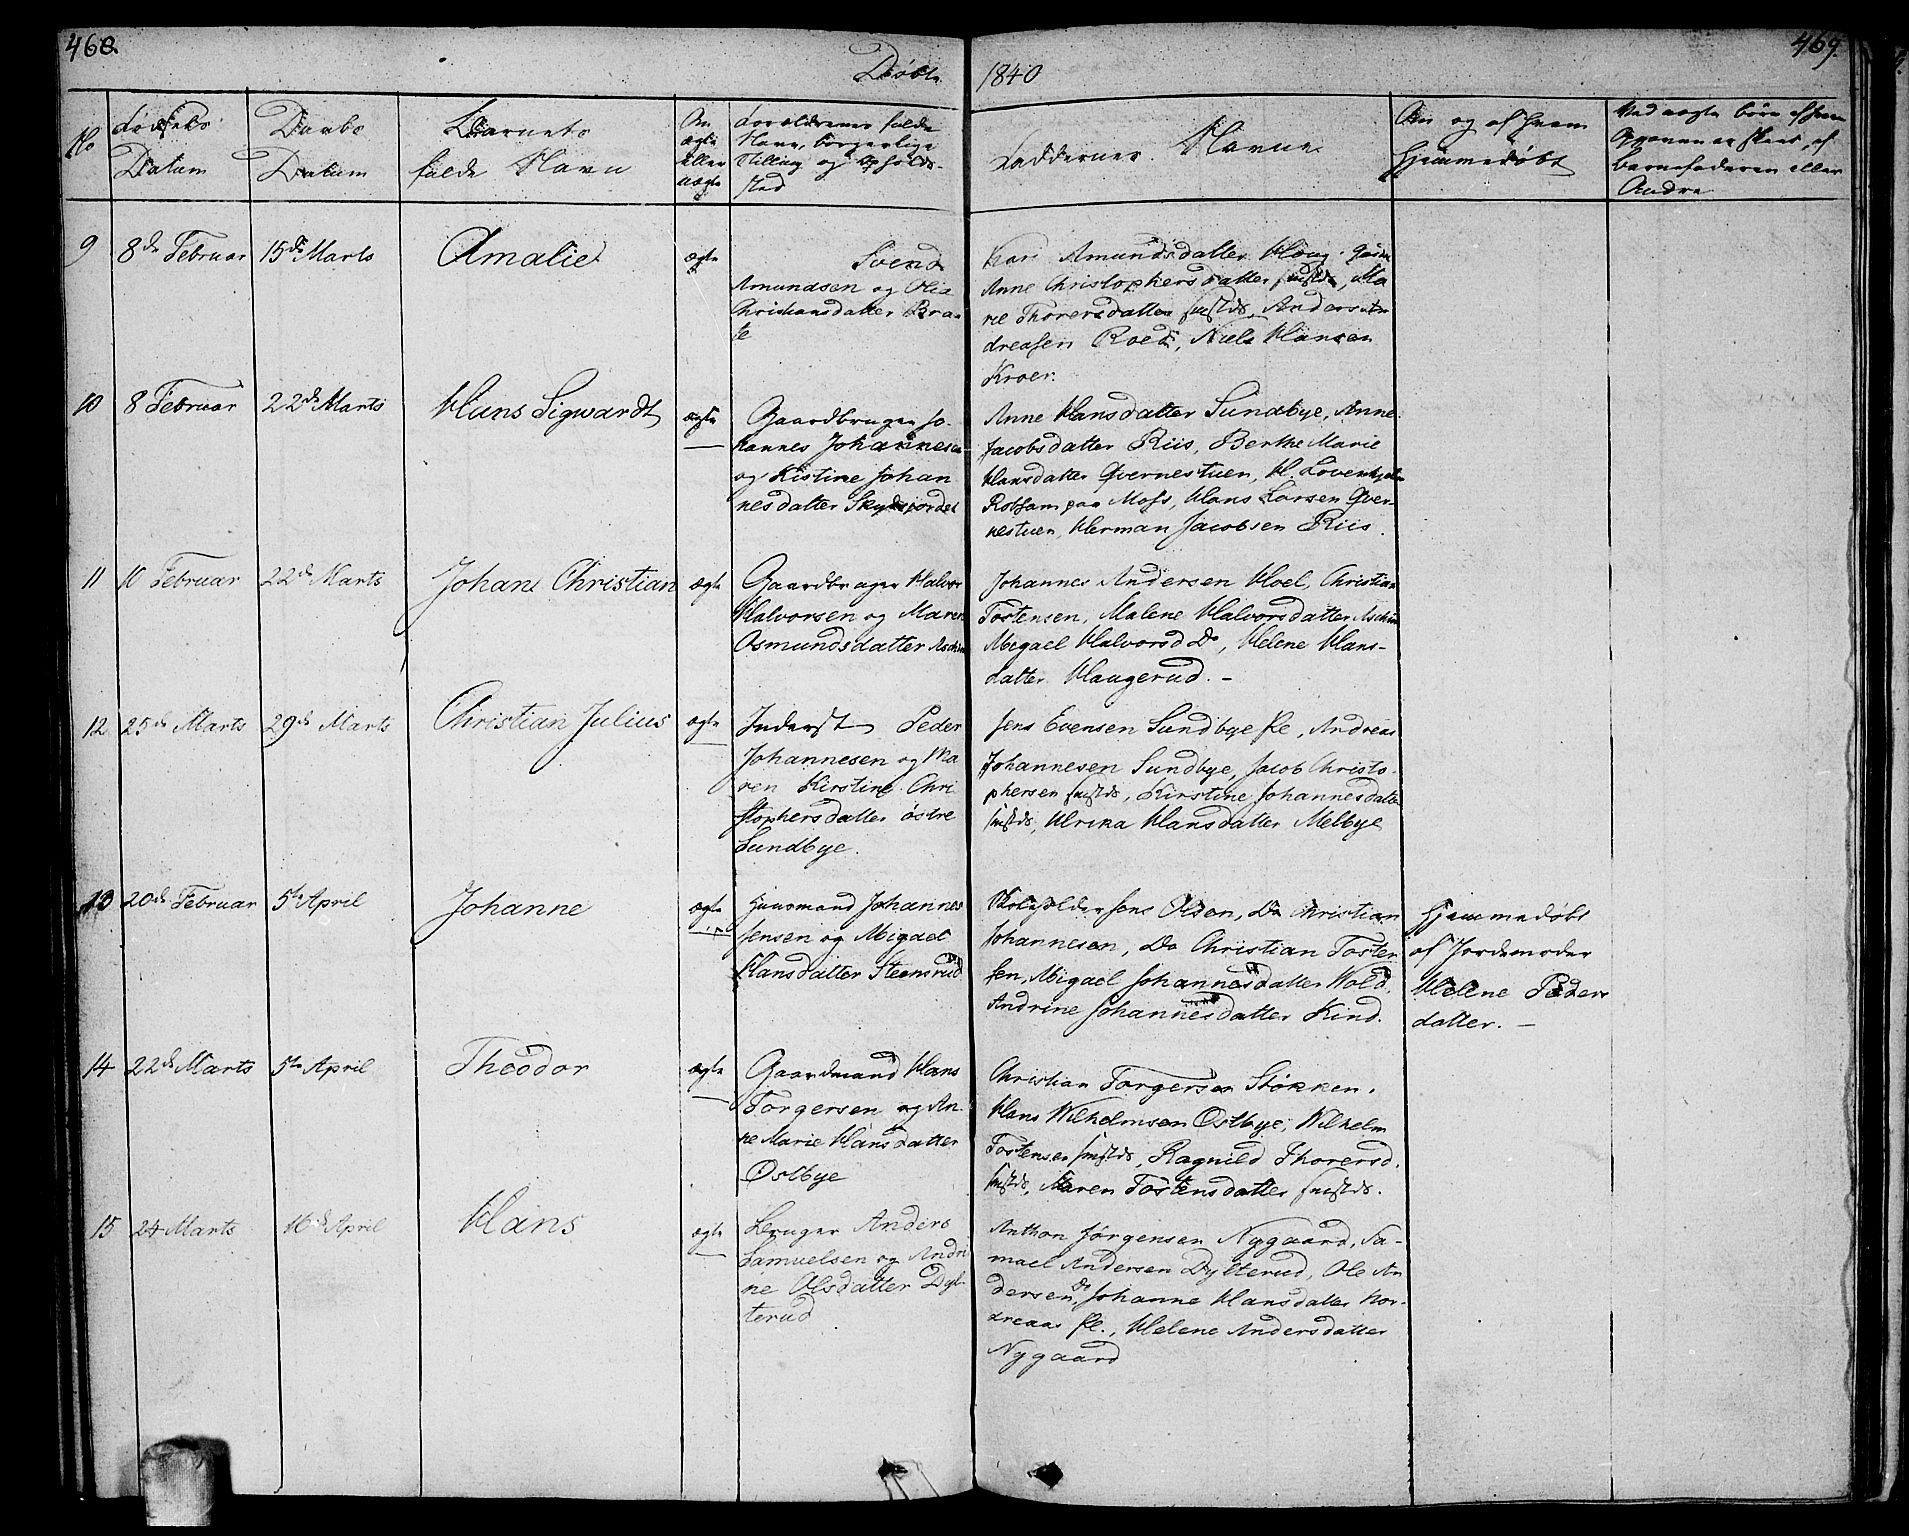 468.
Døbte
1840
469.
No
Fødsels
Datum
Daabs
Datum
Barnets
fulde Navn
Om
ægte
eller
uægte
Forældrenes fulde
Navn, borgerlige
Stilling og Opholds-
sted
Faddernes Navne
Om og af hvem
hjemmedøbt
Ved uægte børn af hvem
Opgaven er skeet, af
barnefaderen eller
Andre
9
8de Februar
15de Marts
Amalie
ægte
Svend
Amundsen og Olia
Christiansdatter Bra-
te
Kari Amundsdatter Houg
Anne Christophersdatter sammestds, Ma
rie Thorersdatter sammestds, Anders An
dreasen Roed, Niels Hansen
Kroer.
10
8 Februar
22de Marts
Hans Sigwardt
ægte
Gaardbruger Jo-
hannes Johannesen
og Kistine Johan
nesdatter Skydsjordet
Anne Hansdatter Sundbye, Anne
Jacobsdatter Riis, Berthe Marie
Hansdatter Qvernestuen, H.
paa Moss, Hans Larsen Qver-
nestuen, Herman Jacobsen Riis.
11
10 Februar
22de Marts
Johan Christian
ægte
Gaardbruger Halvor
Halvorsen og Maren
Osmundsdatter Aschim
Johannes Andersen Hoel, Christian
Tostensen, Malene Halvorsdatter Aschim
Abigael Halvorsd Do, Helene Hans-
datter Haugerud. -
12
25de Marts
29de Marts
Christian Julius
ægte
Inderst Peder
Johannesen og Ma
ren Kirstine Chri
stophersdatter østre
Sundbye.
Jens Evensen Sundbye Ee, Andreas
Johannesen Sundbye, Jacob Christo-
phersen sammestds, Kirstine Johannesdatter
sammestds, Ulrika Hansdatter Melbye
13
20de Februar
5te April
Johanne
ægte
Huusmand Johannes
Jensen og Abigael
Hansdatter Steensrud
Skoleholder Jens Olsen, Do Christian
Johannesen, Do Christian Tosten
sen, Abigael Johannesdatter Wold,
Andrine Johannesdatter Kind.
Hjemmedøbt
af Jordemoder
Helene Peders
datter. -
14
22de Marts
5te April
Theodor
ægte
Gaardmand Hans
Torgersen og An-
ne Marie Hansdatter
Ostbye
Christian Torgersen Støkken,
Hans Wilhelmsen Ostbye, Wilhelm
Tostensen sammestds, Ragnild Thorersd.
sammestds, Maren Tostensdatter sammestds.
15
24 Marts
16de April
Hans
ægte
Bruger Anders
Samuelsen og Andri
ne Olsdatter Dyl-
terud
Anthon Jørgensen Nygaard, Sa-
muel Andersen Dylterud, Ole An
dersen Do, Johanne Hansdatter Nor-
dreaas Ee., Helene Andersdatter
Nygaard